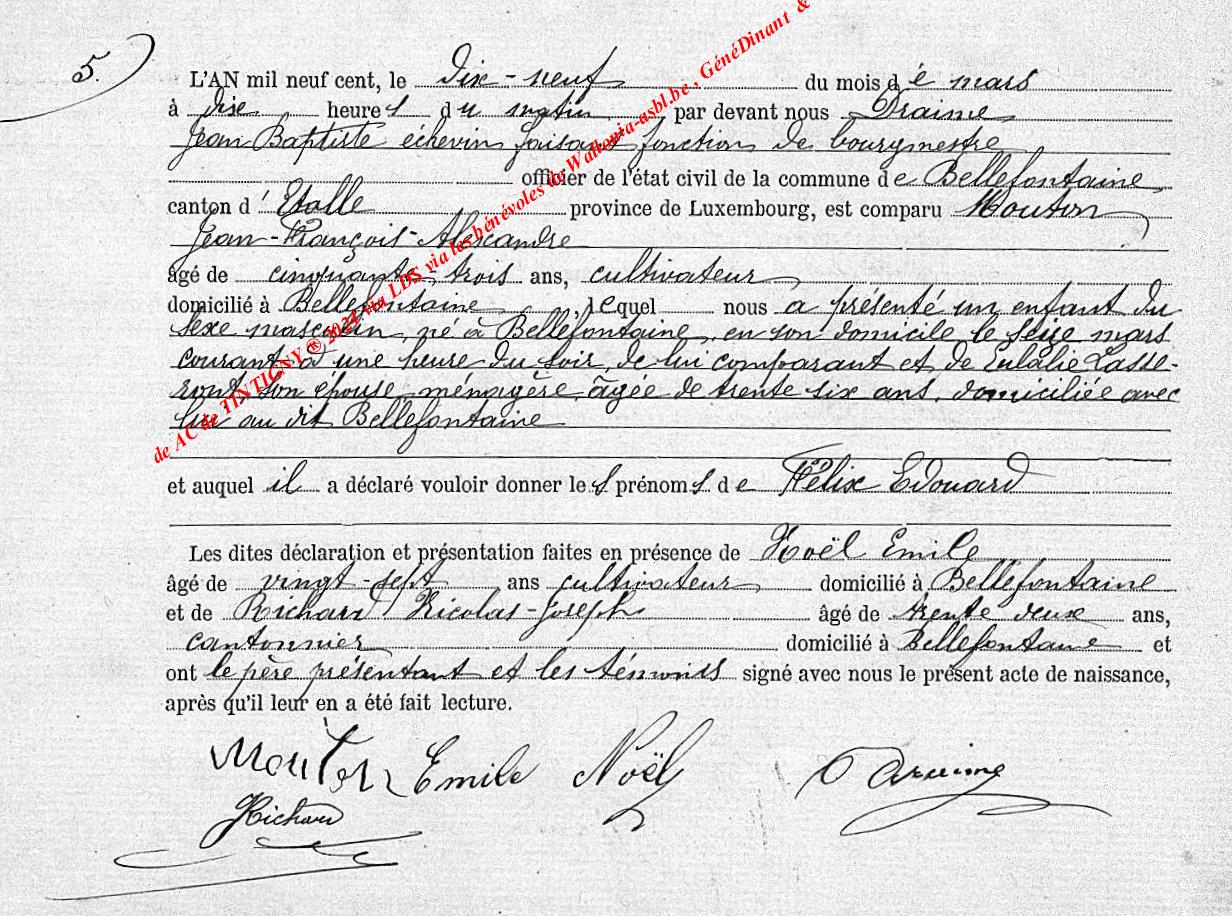 5.
L'AN mil neuf cent, le dix-neuf du mois de mars
à dix heures du matin par devant nous Draime
Jean Baptiste échevin faisant fonction de bourgmestre
officier de l'état civil de la commune de Bellefontaine,
canton d'Etalle province de Luxembourg, est comparu Mouton
Jean-François-Alexandre
âgé de cinquante-trois ans, cultivateur
domicilié à Bellefontaine, lequel nous a présenté un enfant du
sexe masculin, né à Bellefontaine, en son domicile le seize mars
courant à une heure du soir, de lui comparant et de Eulalie Lasse-
ront son épouse, ménagère, âgée de trente six ans, domiciliée avec
lui au dit Bellefontaine
et auquel il a déclaré vouloir donner les prénoms de Félix Edouard
Les dites déclaration et présentation faites en présence de Noël Emile
âgé de vingt-sept ans cultivateur domicilié à Bellefontaine
et de Richard Nicolas-Joseph âgé de trente deux ans,
cantonnier domicilié à Bellefontaine et
ont le père présentant et les témoins signé avec nous le présent acte de naissance,
après qu'il leur en a été fait lecture.
Mouton Emile Noël Draime
Richard
de AC de TINTIGNY ® 2024 via LDS via les bénévoles de Wallonia-asbl.be , GénéDinant &